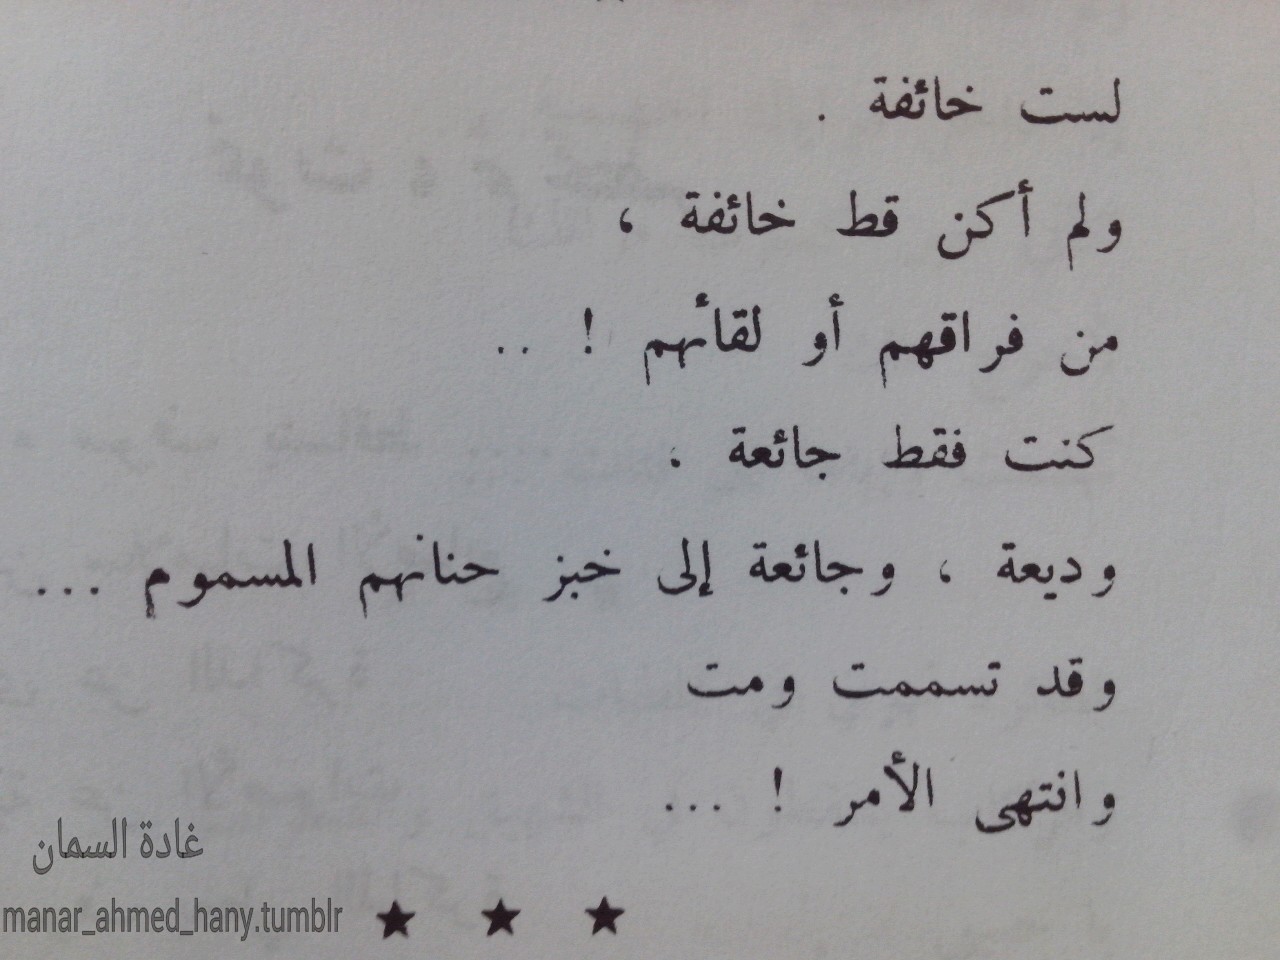 لست خائفة .
ولم أكن قط خائفة ،
من فراقهم أو لقائهم ! ..
كنت فقط جائعة .
وديعة ، وجائعة إلى خبز حنانهم المسموم ...
وقد تسممت ومت
وانتهى الأمر ! ...
غادة السمان
manar_ahmed_hany.tumblr
★ ★ ★